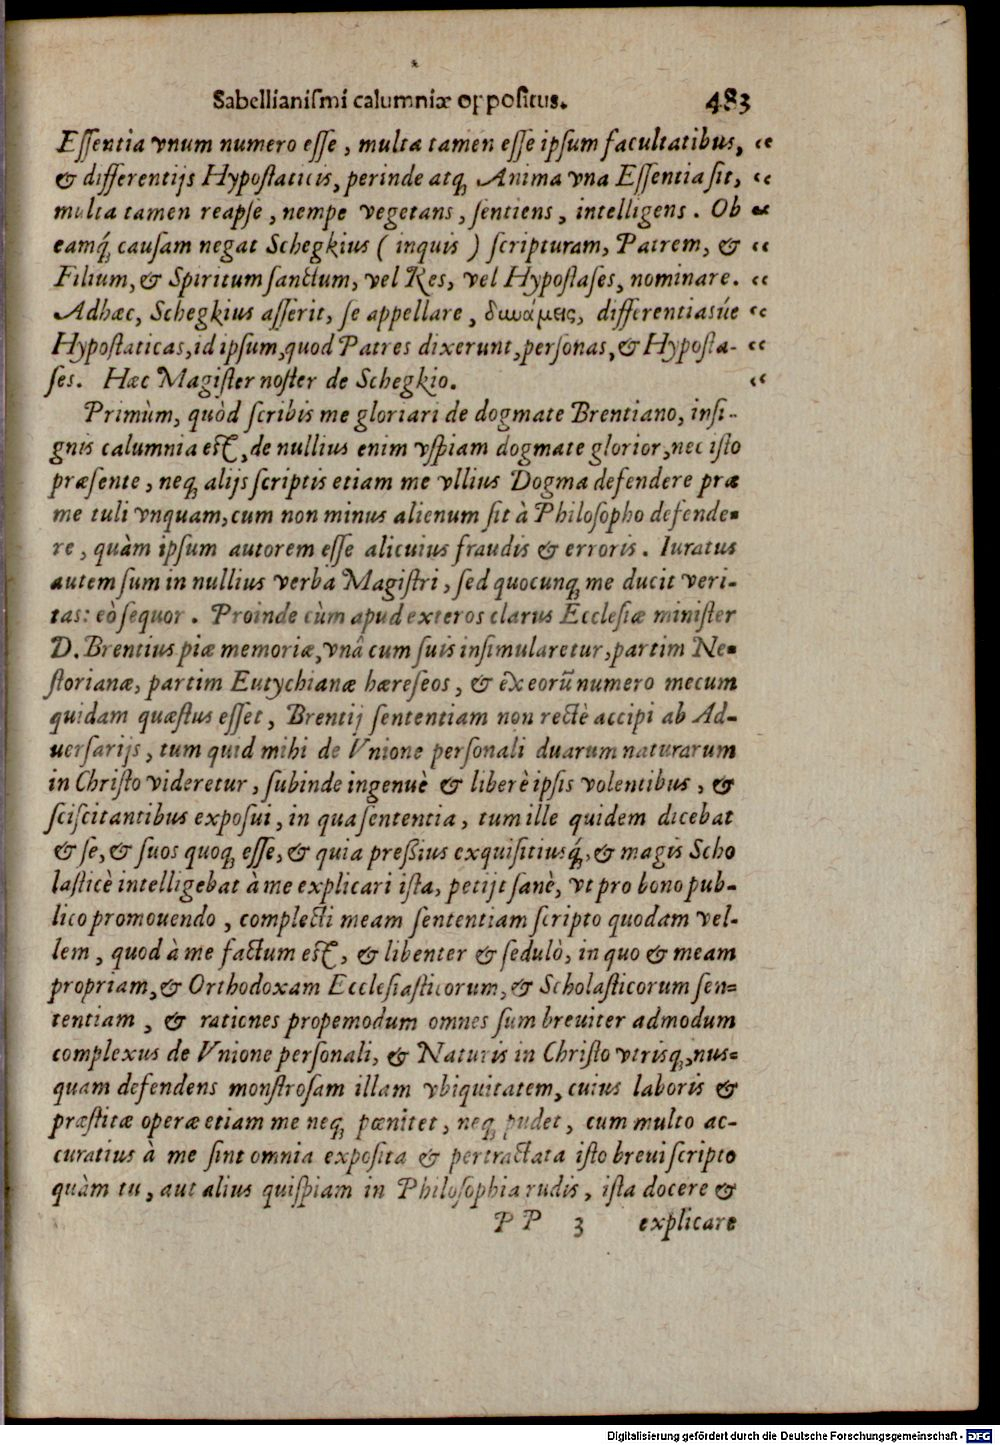 Sabellianiſmi calumniæ oppoſitus. 483
Eſſentia vnum numero eſſe, multa tamen eſſe ipſum facultatibus, “
& differentijs Hypoſtaticis, perinde atq; Anima vna Eſſentia ſit, “
multa tamen reapſe, nempe vegetans, ſentiens, intelligens. Ob “
eamq́; cauſam negat Schegkius (inquis) ſcripturam, Patrem, & “
Filium, & Spiritum ſanctum, vel Res, vel Hypoſtaſes, nominare. “
Adhæc, Schegkius aſſerit, ſe appellare, δυνάμεις, differentiasúe “
Hypoſtaticas, id ipſum, quod Patres dixerunt, perſonas, & Hypoſta- “
ſes. Hæc Magiſter noſter de Schegkio. “
Primùm, quòd ſcribis me gloriari de dogmate Brentiano, inſi-
gnis calumnia eſt, de nullius enim vſpiam dogmate glorior, nec iſto
præſente, neq; alijs ſcriptis etiam me vllius Dogma defendere præ
me tuli vnquam, cum non minus alienum ſit à Philoſopho defende-
re, quàm ipſum autorem eſſe alicuius fraudis & erroris. Iuratus
autem ſum in nullius verba Magiſtri, ſed quocunq; me ducit veri-
tas: eò ſequor. Proinde cùm apud exteros clarus Eccleſiæ miniſter
D. Brentius piæ memoriæ, vnâ cum ſuis inſimularetur, partim Ne-
ſtorianæ, partim Eutychianæ hæreſeos, & ex eorũ numero mecum
quidam quæſtus eſſet, Brentij ſententiam non rectè accipi ab Ad-
uerſarijs, tum quid mihi de Vnione perſonali duarum naturarum
in Chriſto videretur, ſubinde ingenuè & liberè ipſis volentibus, &
ſciſcitantibus expoſui, in qua ſententia, tum ille quidem dicebat
& ſe, & ſuos quoq; eſſe, & quia preßius exquiſitiusq́;, & magis Scho
laſticè intelligebat à me explicari iſta, petijt ſanè, vt pro bono pub-
lico promouendo, complecti meam ſententiam ſcripto quodam vel-
lem, quod à me factum eſt, & libenter & ſedulò, in quo & meam
propriam, & Orthodoxam Eccleſiaſticorum, & Scholaſticorum ſen-
tentiam, & rationes propemodum omnes ſum breuiter admodum
complexus de Vnione perſonali, & Naturis in Chriſto vtrisq;, nus-
quam defendens monſtroſam illam vbiquitatem, cuius laboris &
præſtitæ operæ etiam me neq; pœnitet, neq; pudet, cum multo ac-
curatius à me ſint omnia expoſita & pertractata iſto breui ſcripto
quàm tu, aut alius quiſpiam in Philoſophia rudis, iſta docere &
PP 3 explicare
Digitalisierung gefördert durch die Deutsche Forschungsgemeinschaft - DFG